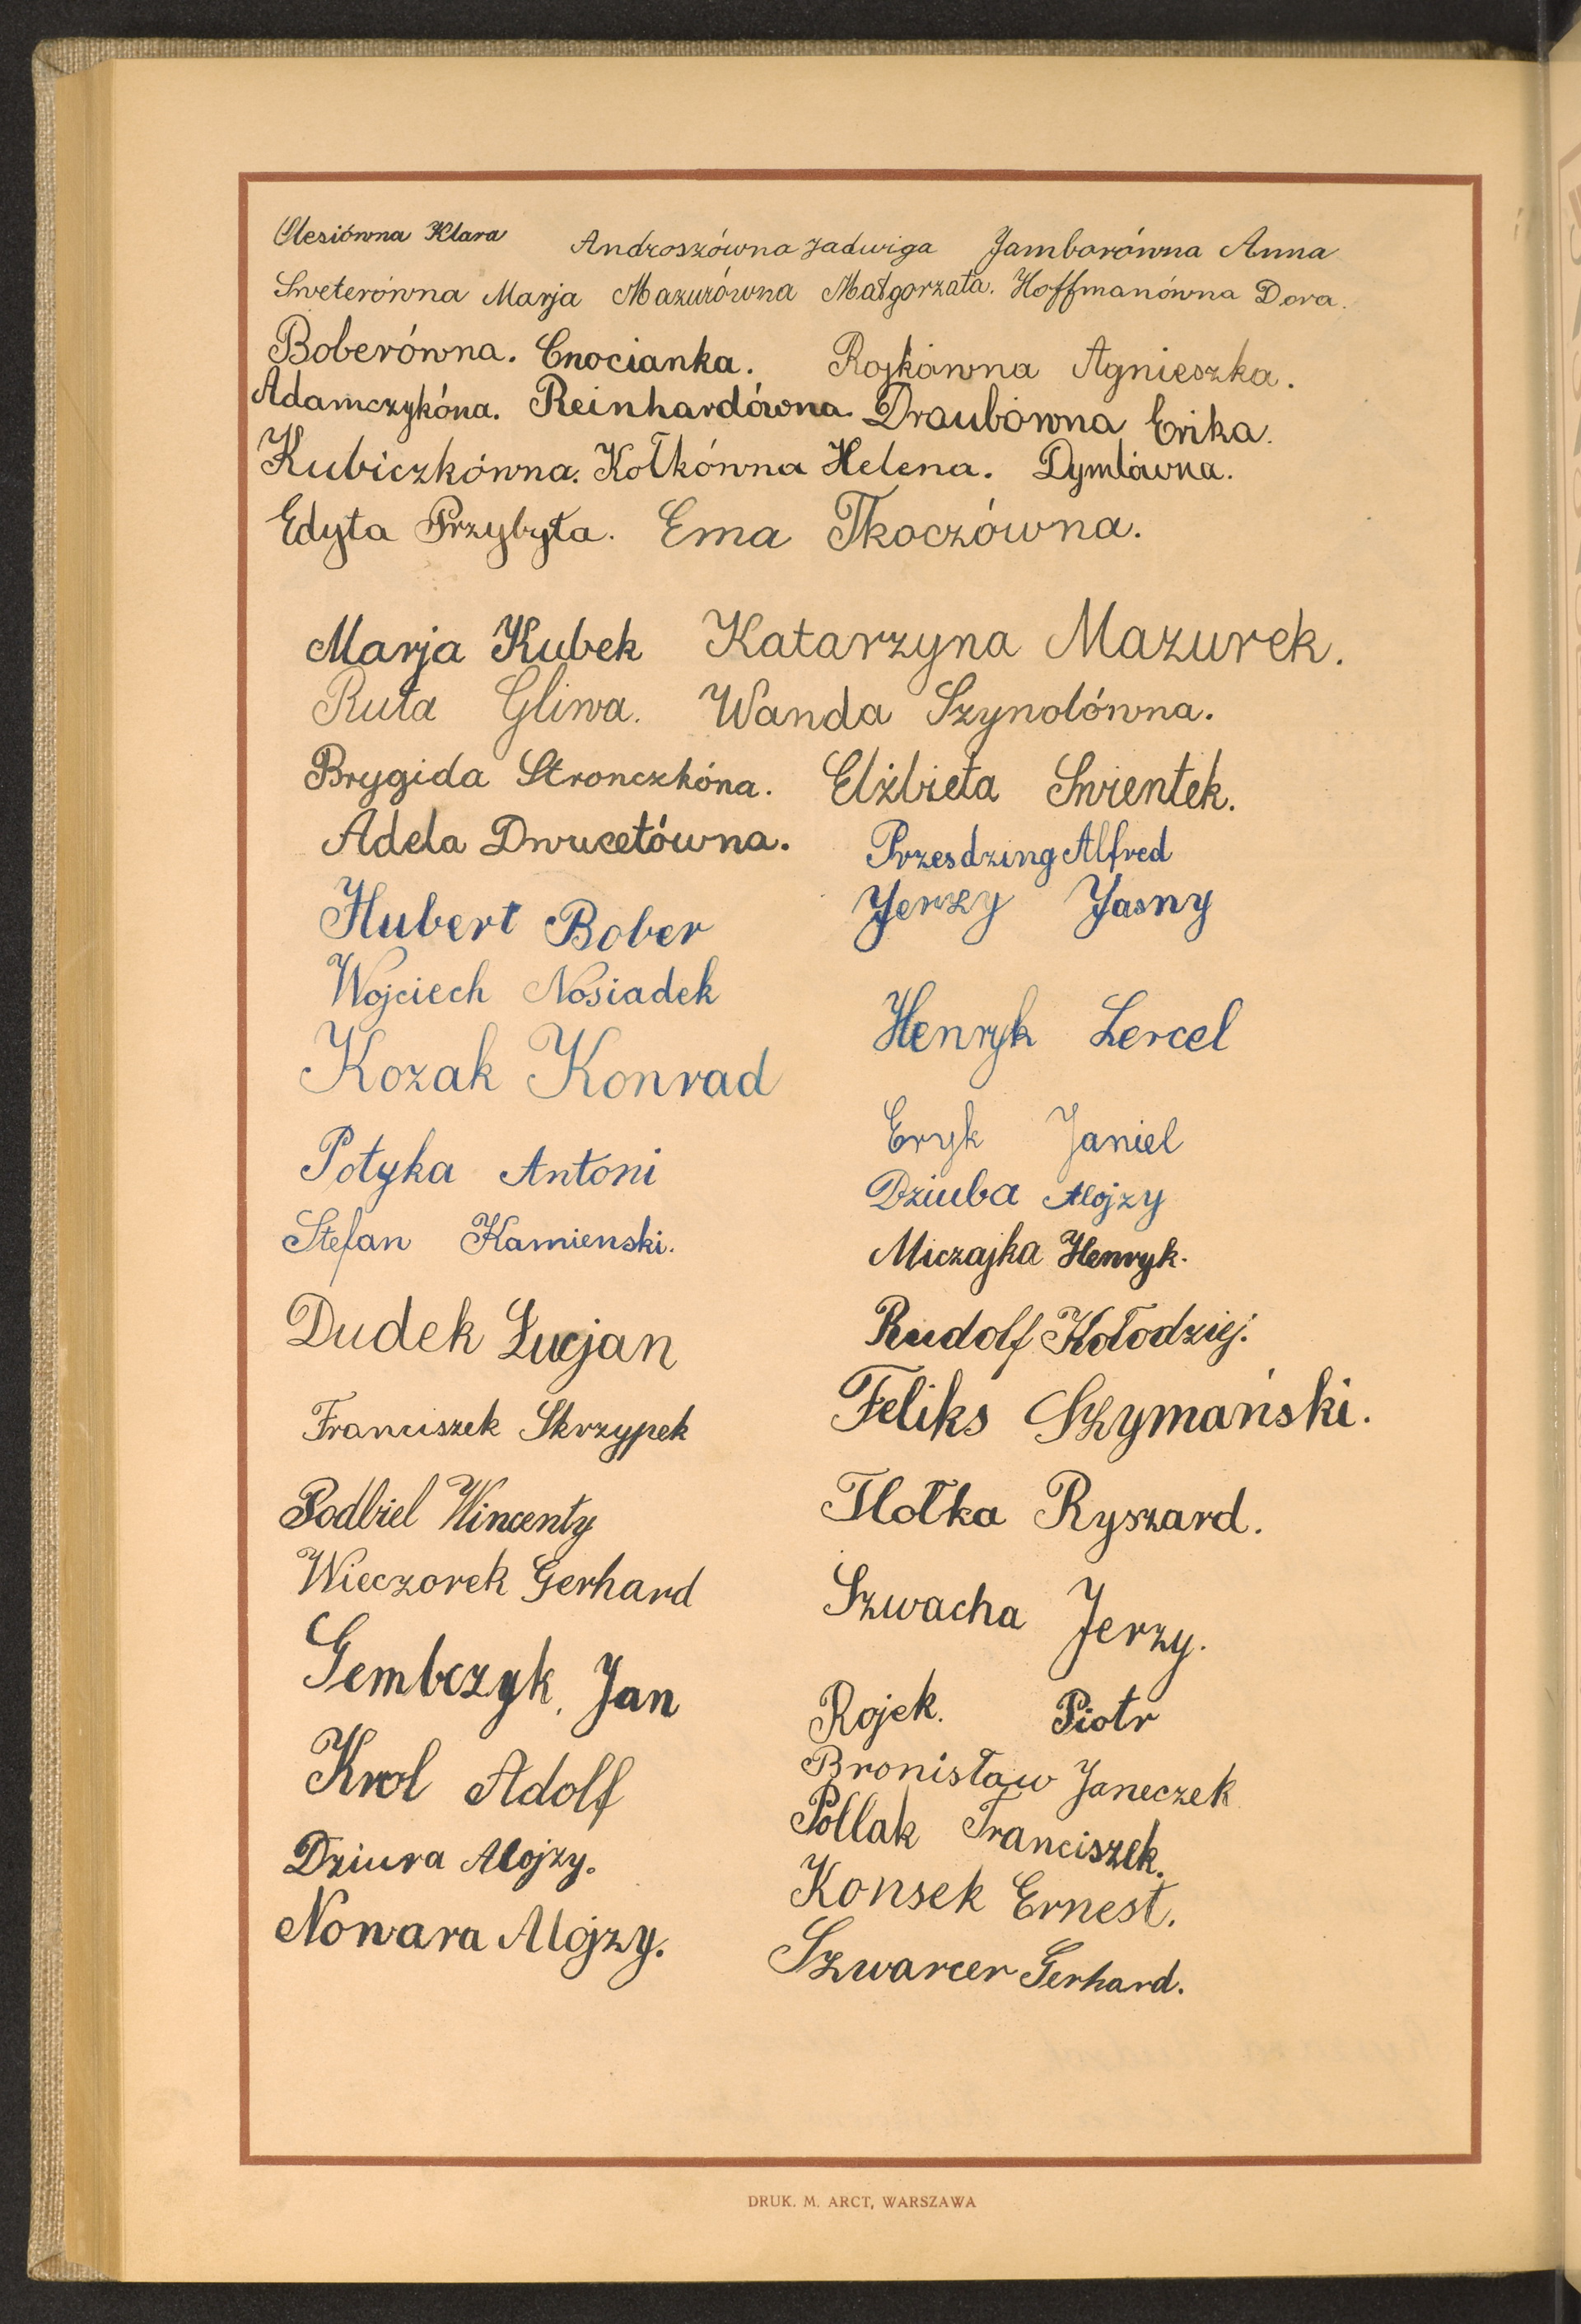 Olesiówna Klara Androszówna Jadwiga Jamborówna Anna
Sweterówna Marja Mazurówna Małgorzata. Hoffmanówna Dora.
Boberówna. Cnocianka. Rojkówna Agnieszka.
Adamczykóna. Reinhardówna. Draubówna Erika.
Kubiczkówna. Kołkówna Helena. Dymlówna.
Edyta Przybyła. Ema Tkoczówna.
Marja Kubek Katarzyna Mazurek.
Ruta Gliwa. Wanda Szynolówna.
Brygida Stronczkóna. Elżbieta Swientek.
Adela Dwucetówna. Przesdzing Alfred
Hubert Bober Jerzy Jasny
Wojciech Nosiadek
Kozak Konrad Henryk Lercel
Potyka Antoni Eryk Janiel
Dziuba Alojzy
Stefan Kamienski. Miczajka Henryk.
Dudek Łucjan Rudolf Kołodziej.
Franciszek Skrzypek Feliks Szymański.
Podbiel Wincenty Tlołka Ryszard.
Wieczorek Gerhard Szwacha Jerzy.
Gembczyk, Jan Rojek. Piotr
Krol Adolf Bronisław Janeczek
Pollak Franciszek.
Dziura Alojzy. Konsek Ernest.
Nowara Alojzy. Szwarcer Gerhard.
DRUK. M. ARCT, WARSZAWA